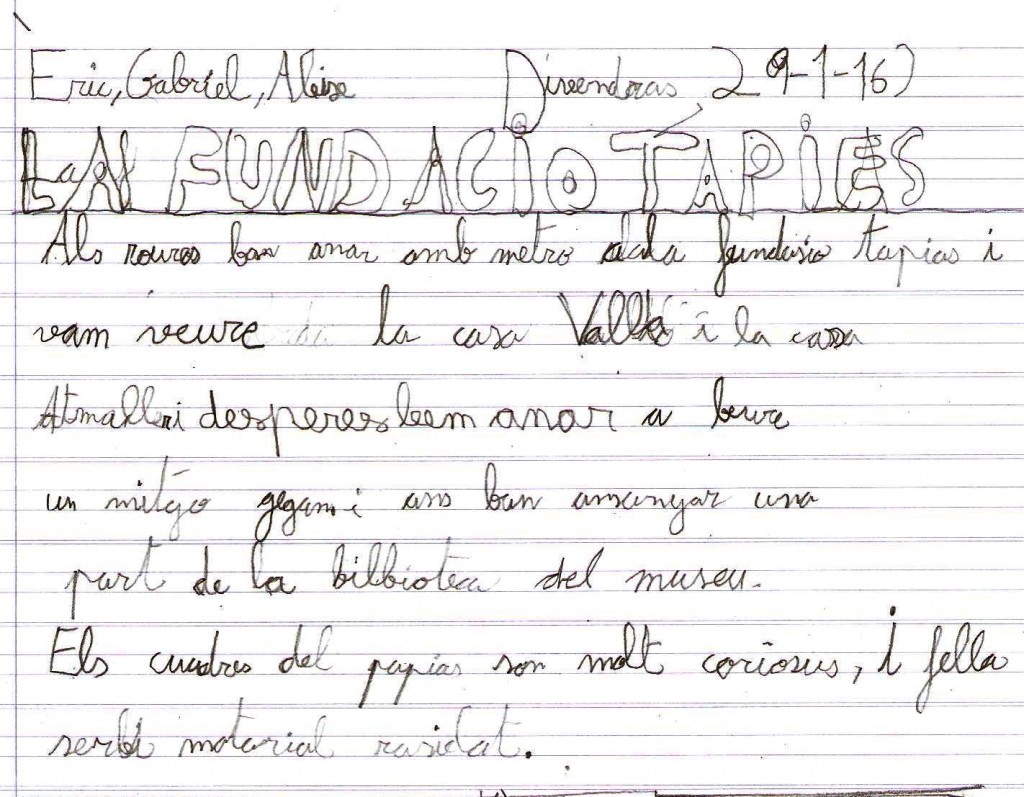 Eric, Gabriel, Aleix Diveendras 29-1-16
LA FUNDACIÓ TÀPIES
Als rouras ban anar amb metro a la fundasio tapias i
vam veure la casa Vallló i la casa
Atmalleri desperes bem anar a beure
un mitgo gegam i ans ban ansanyar una
part de la bilbioteca del museu.
Els cuadres del papias son molt coriosus, i fella
serbi matarial rasiclat.